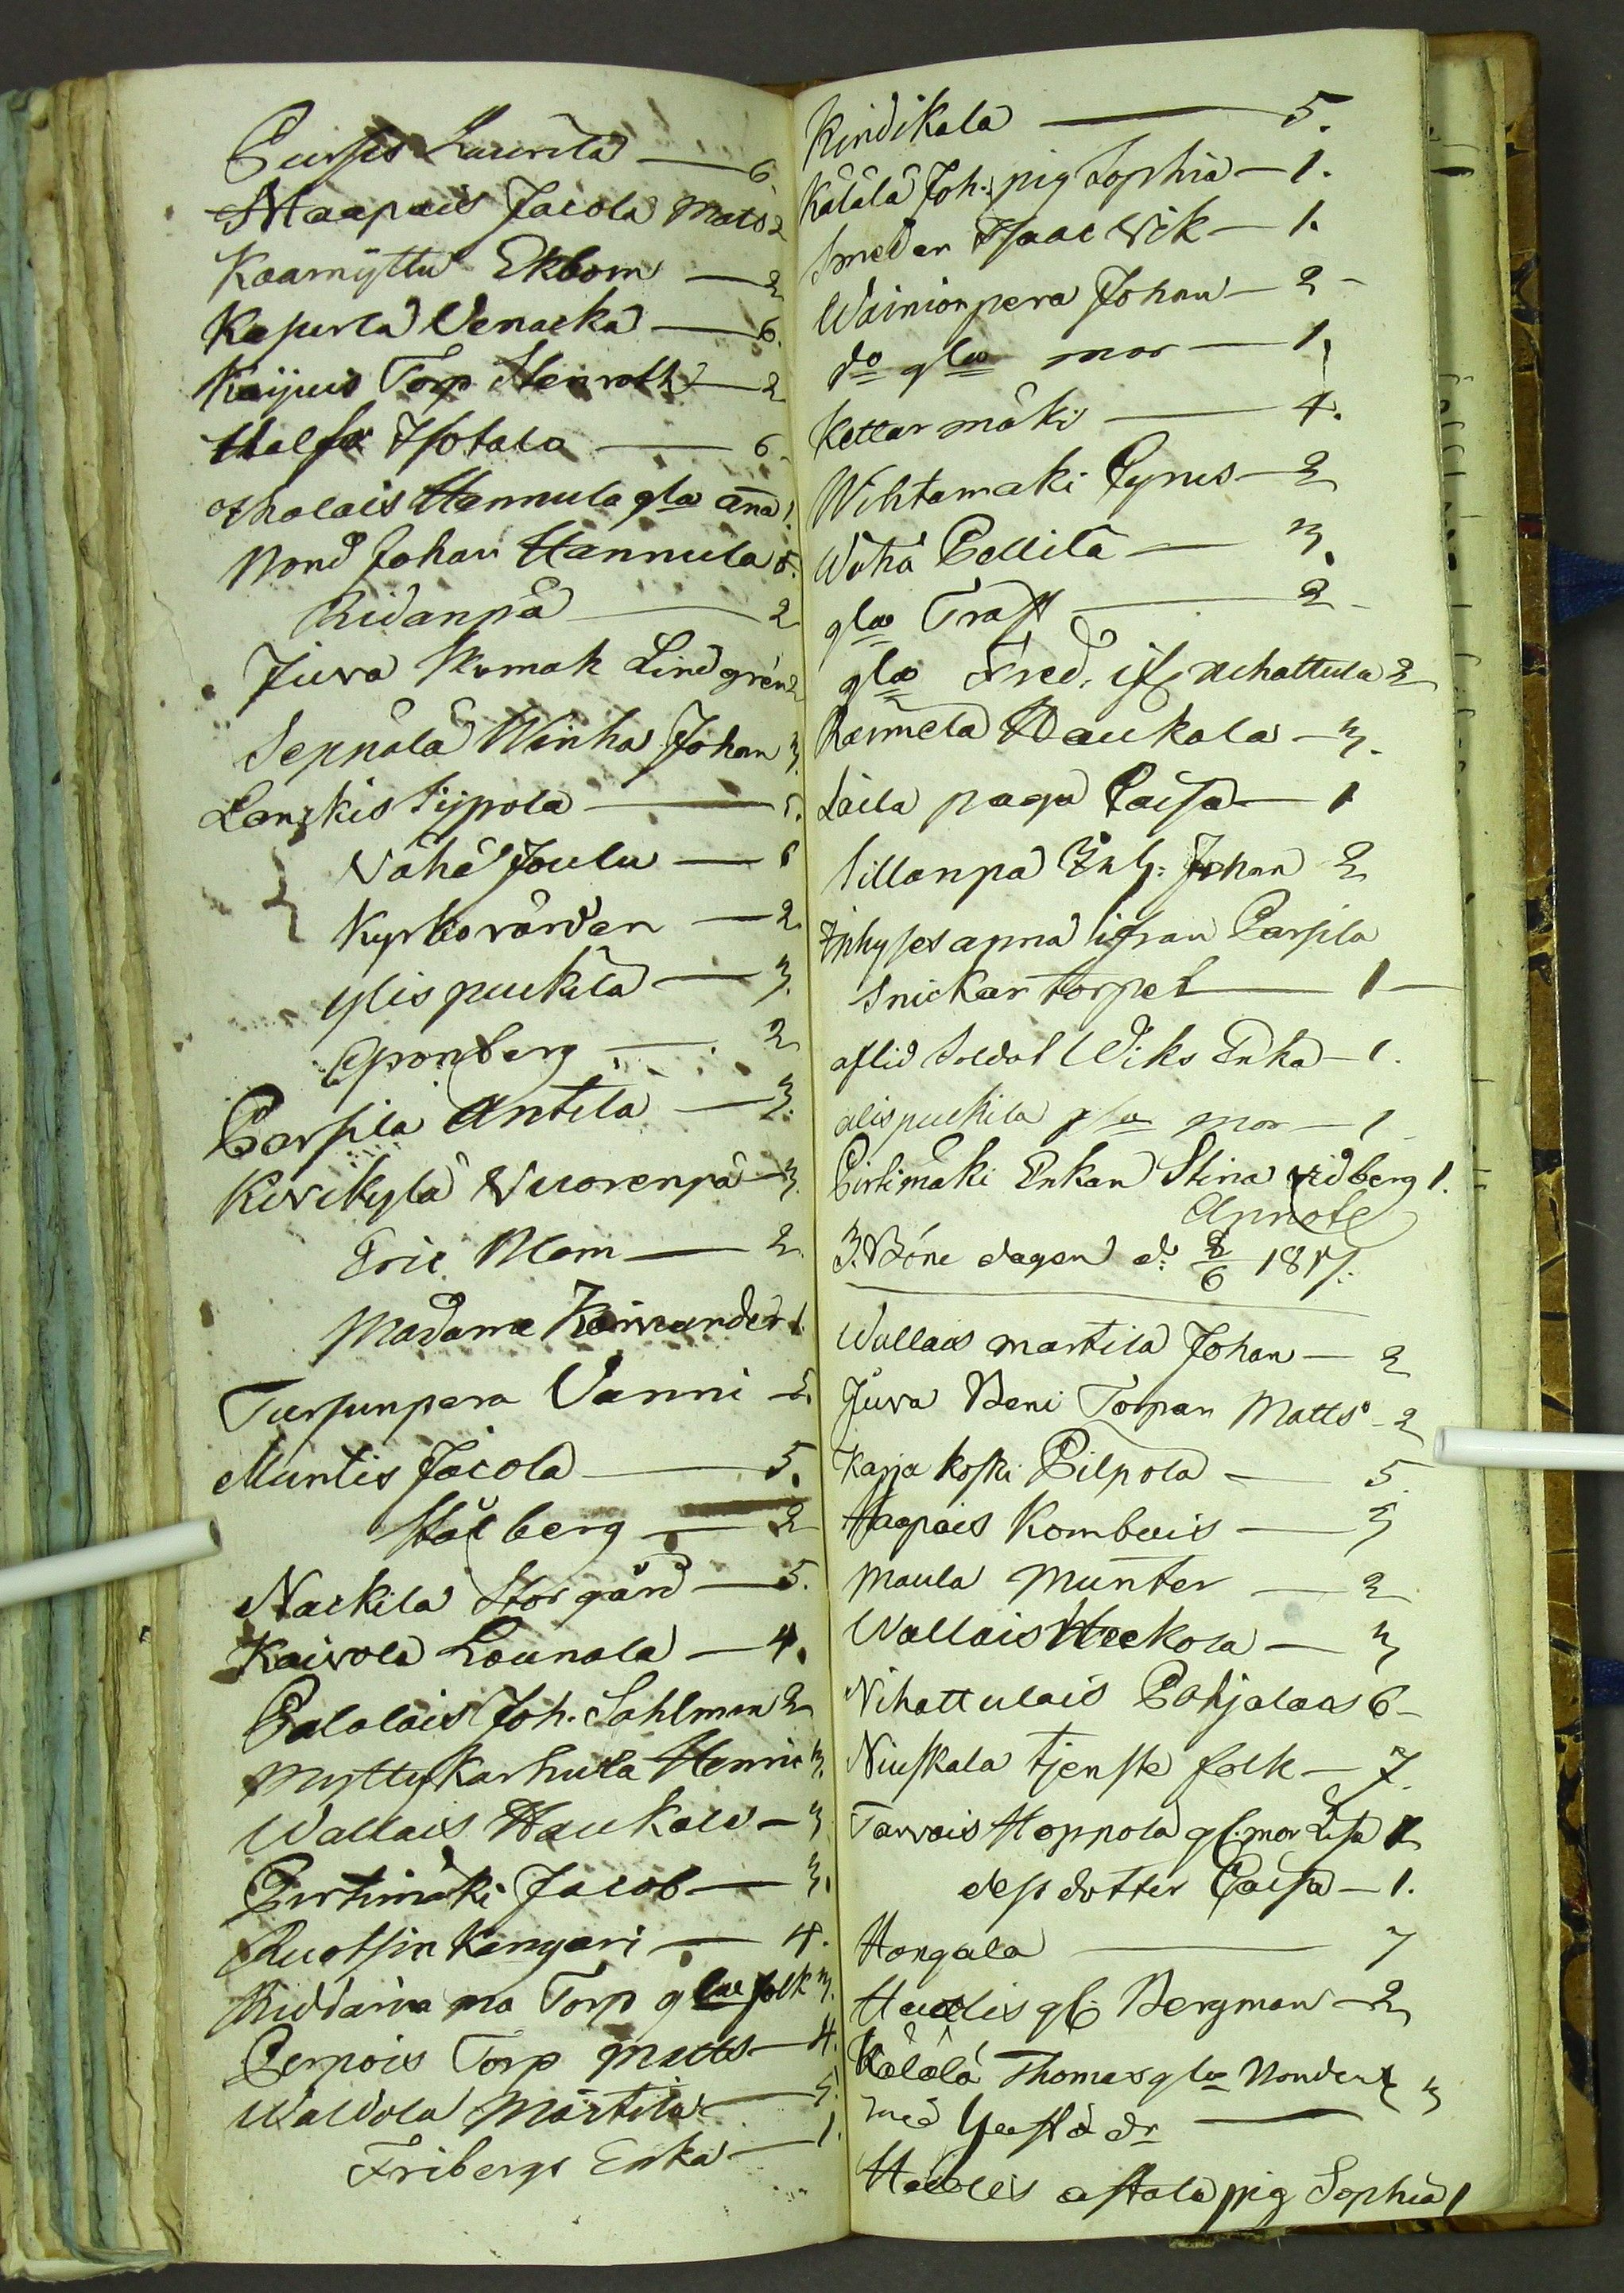 Pursis Laurila — 6.
Haapais Jacola Mats 2
Kaamyttu Ekbom — 2
Kapurla Venacka — 6.
Kaijuis Torp Stenroth — 2
Isotala — 6
Hannula gla Anna 1.
Nond Johan Hannula 5.
Ridanpä — 2
Juva Skomak Lindgren 2
Seppälä Winha Johan 3.
Lanskis Sijpola — 5.
Vähä Joulu — 6
Kyrkovärden — 2
ylispuckila — 3.
Gronberg — 2
Parsila Antila — 3.
Kivikylä Vuorenpä — 3.
Eric Mom — 2.
Madame 1
Tursunpera Vanni — 5.
Muntis Jacola — 5.
Stålberg — 2
Nackila Storgård — 5.
Kaivola Lounala — 4.
Palalais Joh. Sahlman 2
Myttykarhula Henric 3.
Wallais Haukais — 3
Pirtimäki Jacob — 3.
Ruotsin Kangari — 4.
ma Torp glae folk 3.
Pernois Torp Matts — 4.
Waldola Märtila — 5.
Fribergs Enka — 1.
Kindikala — 5.
Kälälä Joh: pig Sophia — 1.
Smeden Isaac Wik — 1.
Wäinionpera Johan — 2 -
do gla mor — 1.
Kettarmäki — 4.
Wihtamaki Cyrus — 2
Wähä Pellilä — 3.
gla Trast — 2 -
gla Fred. if nihattula 2
Rannela Haukola — 3.
Laila paga Caisa — 1
Sillanpä Inh: Johan 2
Inhyses anna ifran Parsila
Snickar torpet — 1 —
aflid Soldat Wiks Enka — 1.
alispuckila gla mor — 1
Pirtimäki Enkan Stina vidberg 1.
Annote
3. Böne dagen d: 8/6 1817.
Wallais martila Johan — 2
Juva Beni Torpan Matts — 2
Karja koski Pilpola — 5.
Haapais Kombais — 3
Maula Munter — 2
Wallais Heckola — 3
Nihattulais Pohjalais 6 -
Niuskala tjenste folk — 7.
Tarvais Hoppola gl. mor Lisa 1
dess dotter Caisa — 1.
Hongala — 7
gl: Bergman — 2
Kälälä Thomas gla
med — 3
astala pig Sophia 1